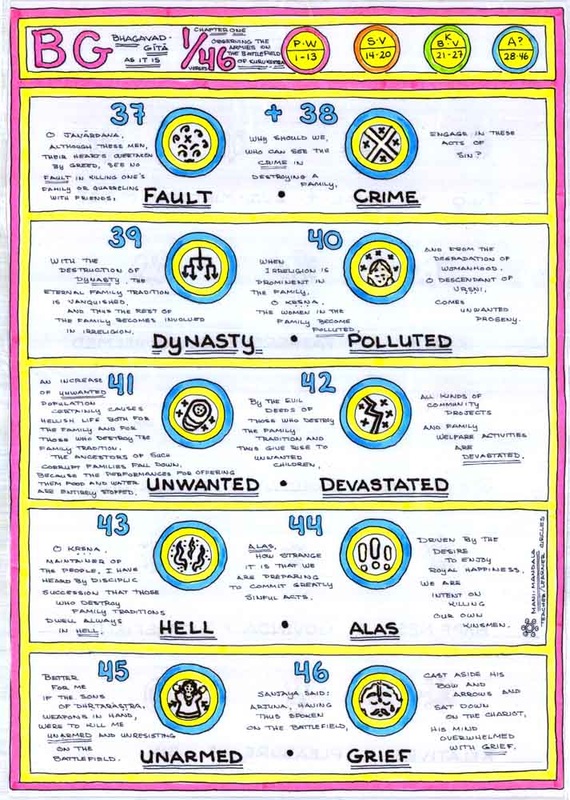 BG
BHAGAVAD-
GĪTĀ
AS IT IS
1/46
VERSES
CHAPTER ONE
OBSERVING THE
ARMIES ON
THE BATTLEFIELD
OF KURUKṢETRA
P·W
1-13
S·V
14-20
K
B·V
21-27
A?
28-46
37
O JANĀRDANA,
ALTHOUGH THESE MEN,
THEIR HEARTS OVERTAKEN
BY GREED, SEE NO
FAULT IN KILLING ONE'S
FAMILY OR QUARRELING
WITH FRIENDS,
+ 38
WHY SHOULD WE,
WHO CAN SEE THE
CRIME IN
DESTROYING A
FAMILY,
ENGAGE IN THESE
ACTS OF
SIN?
FAULT • CRIME
39
WITH THE
DESTRUCTION OF
DYNASTY, THE
ETERNAL FAMILY TRADITION
IS VANQUISHED,
AND THUS THE REST OF
THE FAMILY BECOMES INVOLVED
IN IRRELIGION.
40
WHEN
IRRELIGION IS
PROMINENT IN
THE FAMILY,
O KṚṢṆA,
THE WOMEN IN THE
FAMILY BECOME
POLLUTED,
AND FROM THE
DEGRADATION OF
WOMANHOOD,
O DESCENDANT OF
VṚṢṆI,
COMES
UNWANTED
PROGENY.
DYNASTY • POLLUTED
41
AN INCREASE
OF UNWANTED
POPULATION
CERTAINLY CAUSES
HELLISH LIFE BOTH FOR
THE FAMILY AND FOR
THOSE WHO DESTROY THE
FAMILY TRADITION.
THE ANCESTORS OF SUCH
CORRUPT FAMILIES FALL DOWN,
BECAUSE THE PERFORMANCES FOR OFFERING
THEM FOOD AND WATER
ARE ENTIRELY STOPPED.
42
BY THE EVIL
DEEDS OF
THOSE WHO DESTROY
THE FAMILY
TRADITION AND
THUS GIVE RISE TO
UNWANTED
CHILDREN,
ALL KINDS OF
COMMUNITY
PROJECTS
AND FAMILY
WELFARE ACTIVITIES
ARE
DEVASTATED.
UNWANTED • DEVASTATED
43
O KṚṢṆA,
MAINTAINER OF
THE PEOPLE, I HAVE
HEARD BY DISCIPLIC
SUCCESSION THAT THOSE
WHO DESTROY
FAMILY TRADITIONS
DWELL ALWAYS
IN HELL.
44
ALAS,
HOW STRANGE
IT IS THAT WE
ARE PREPARING
TO COMMIT GREATLY
SINFUL ACTS.
DRIVEN BY THE
DESIRE
TO ENJOY
ROYAL HAPPINESS,
WE ARE
INTENT ON
KILLING
OUR OWN
KINSMEN.
HELL • ALAS
MANI: MANDALA
TEACHER/LEARNER CIRCLES
45
BETTER
FOR ME
IF THE SONS
OF DHṚTARĀṢṬRA,
WEAPONS IN HAND,
WERE TO KILL ME
UNARMED AND UNRESISTING
ON THE
BATTLEFIELD.
46
SAÑJAYA SAID:
ARJUNA, HAVING
THUS SPOKEN
ON THE BATTLEFIELD,
CAST ASIDE HIS
BOW AND
ARROWS AND
SAT DOWN
ON THE CHARIOT,
HIS MIND
OVERWHELMED
WITH GRIEF.
UNARMED • GRIEF